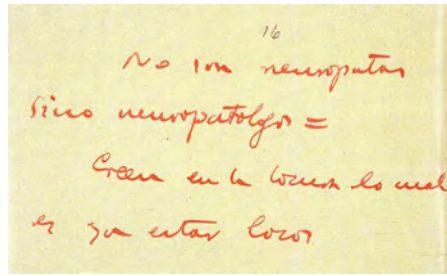 16
No son neuropatas
sino neuropatolgos =
Creen en la locura lo cual
es ya estar locos